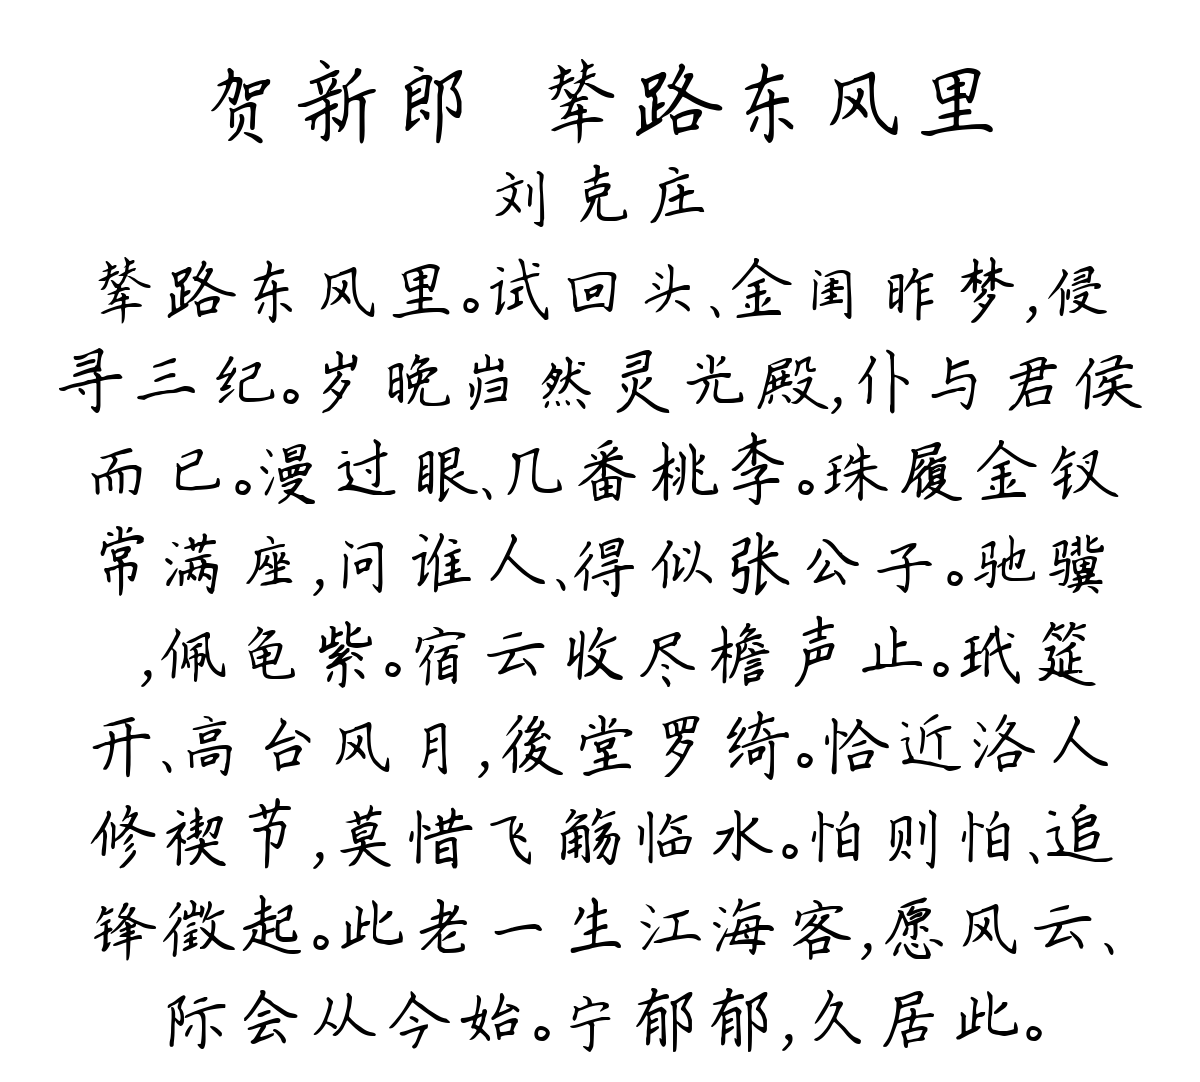 贺新郎 辇路东风里
刘克庄
辇路东风里。试回头、金闺昨梦,侵
寻三纪。岁晚岿然灵光殿,仆与君侯
而已。漫过眼、几番桃李。珠履金钗
常满座,问谁人、得似张公子。驰骥
,佩龟紫。宿云收尽檐声止。玳筵
开、高台风月,後堂罗绮。恰近洛人
修禊节,莫惜飞觞临水。怕则怕、追
锋徵起。此老一生江海客,愿风云、
际会从今始。宁郁郁,久居此。